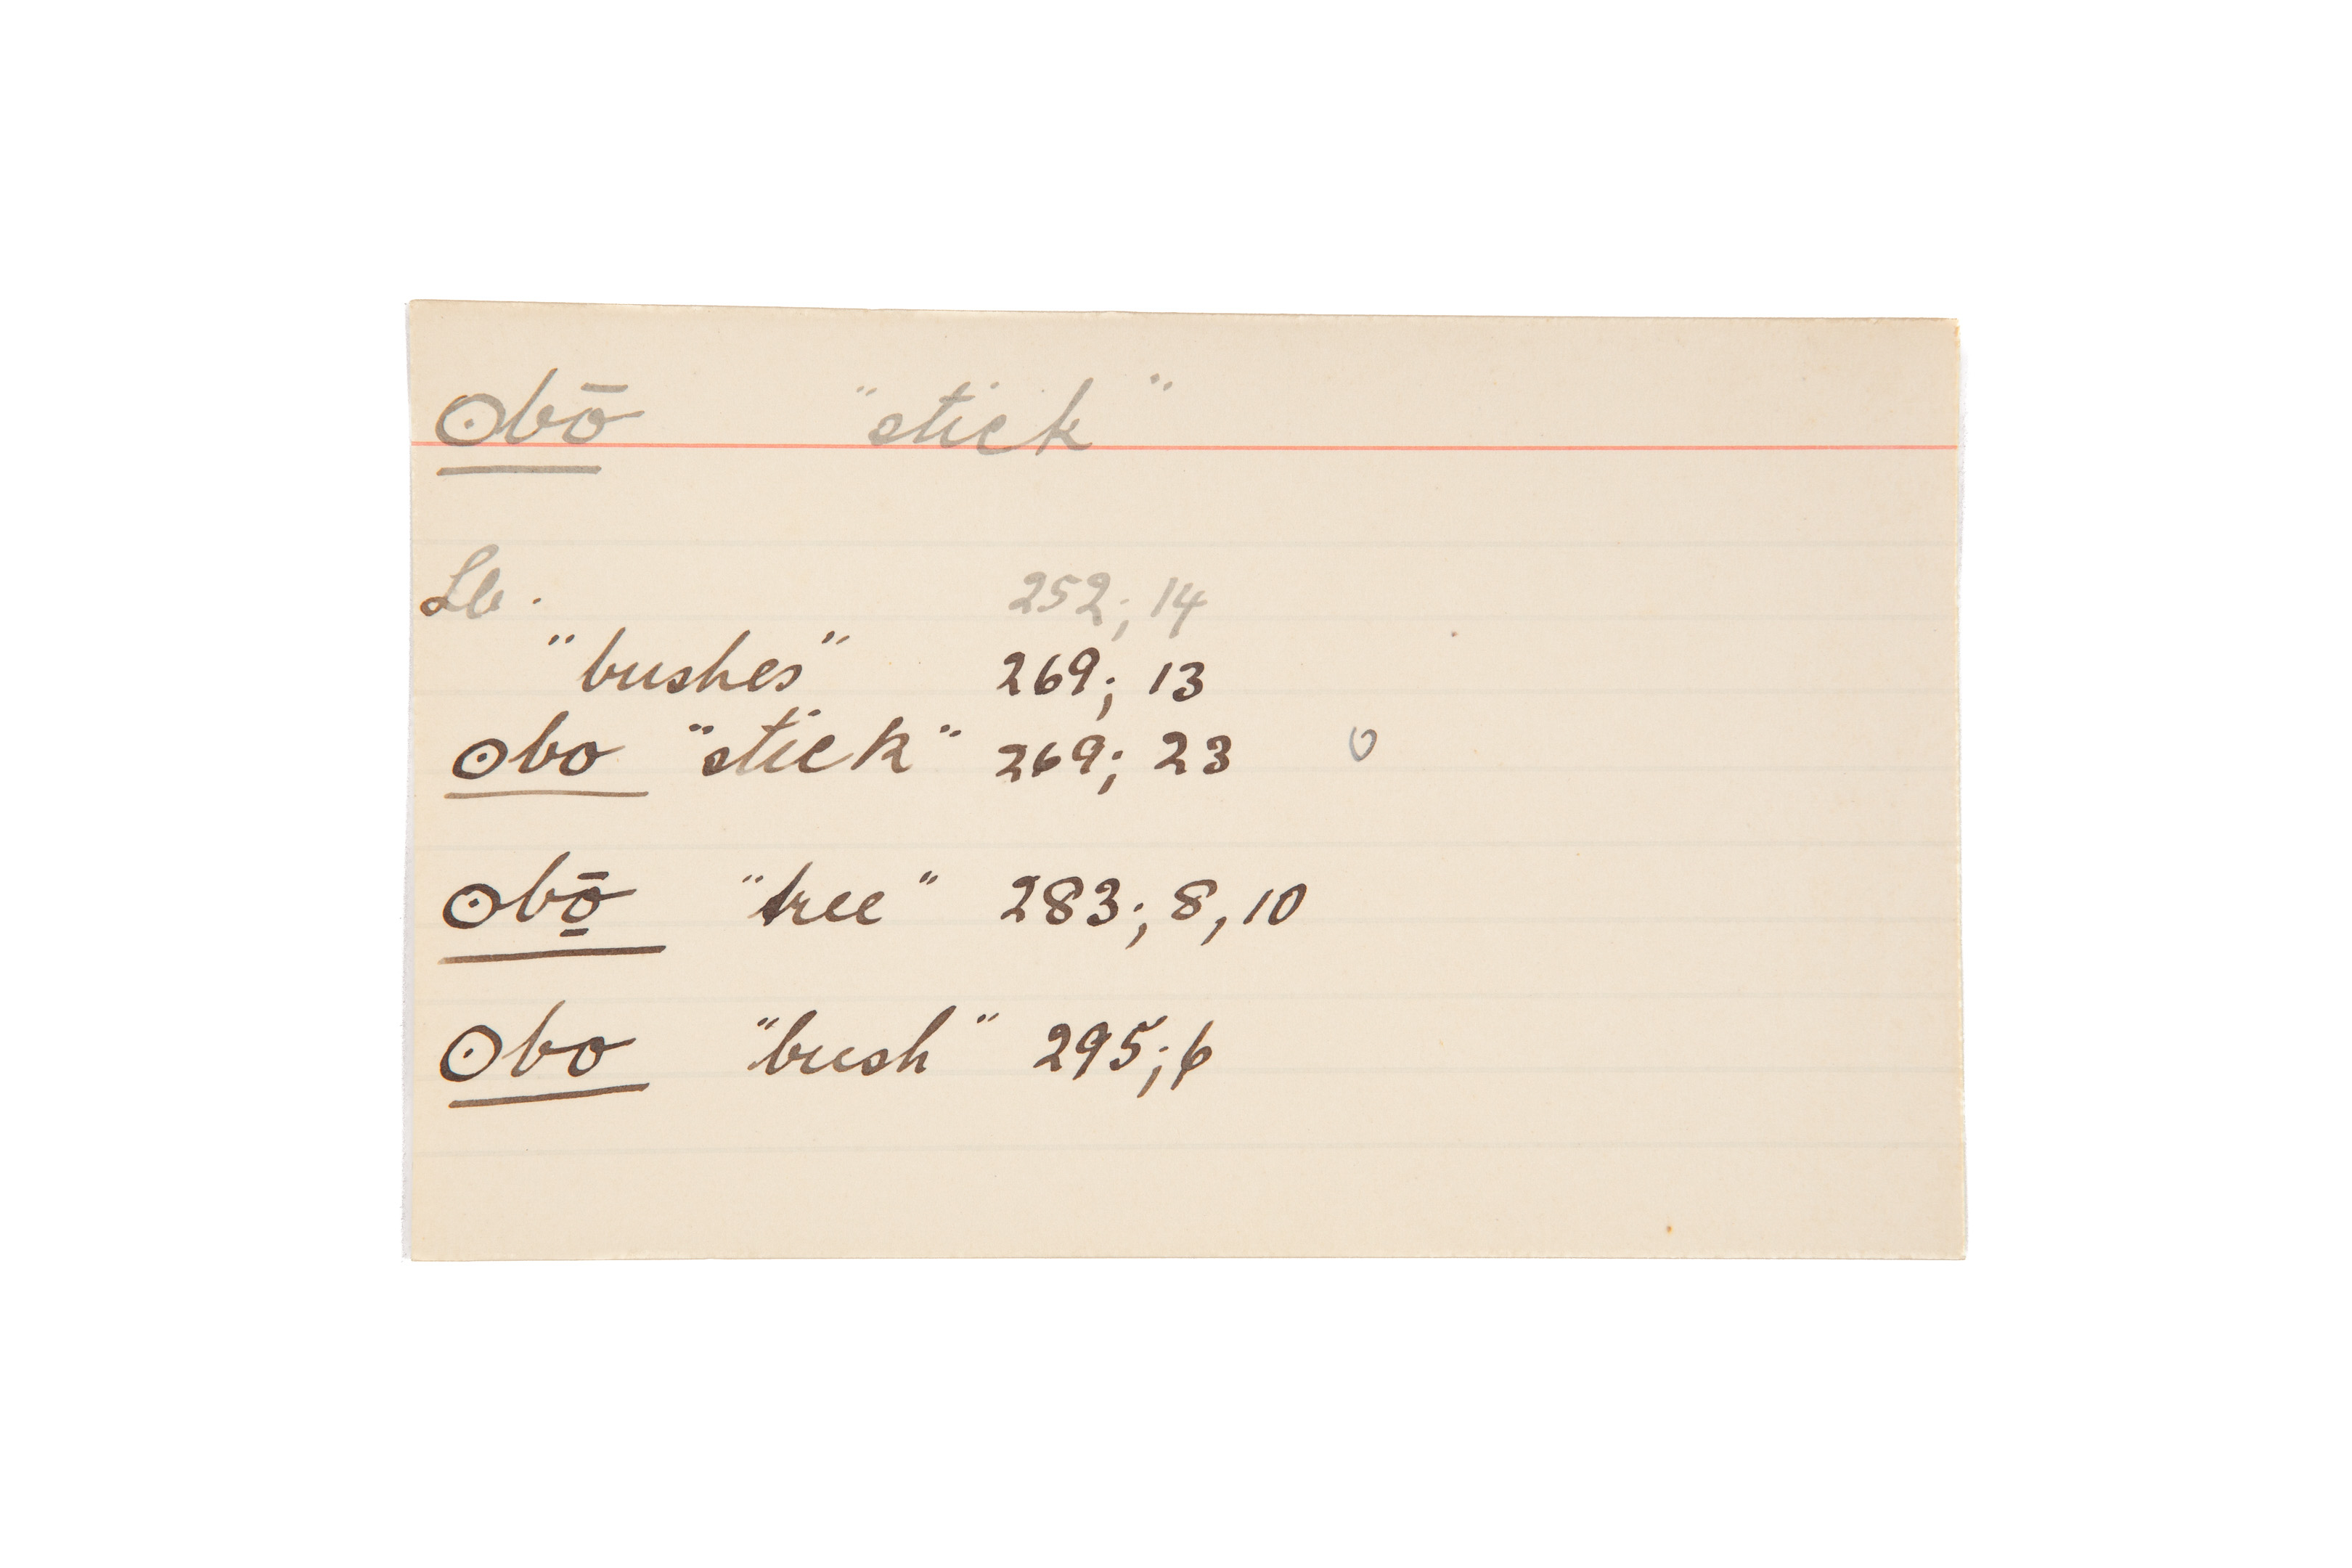 ʘbō "stick"
Lb. 252; 14
"bushes" 269; 13
ʘbo "stick" 269; 23 o
ʘbō̠ "tree" 283; 8, 10
ʘbo "bush" 295; 6